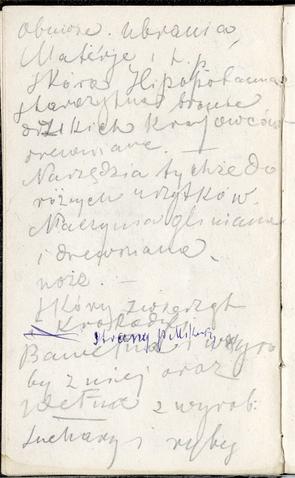 obuwie. ubrania,
Materje i t. p.
Skóra Hipopotama
starożytna bronie
dzikich krajowców
drewniane. —
Narzędzia tychże do
różnych użytków.
Naczynia gliniane
i drewniane.
noże. —
Skóry zwierząt
Krokodyl
Bawełna i wyro
by z niej oraz
wełna z wyrob:
Suchary i ryby